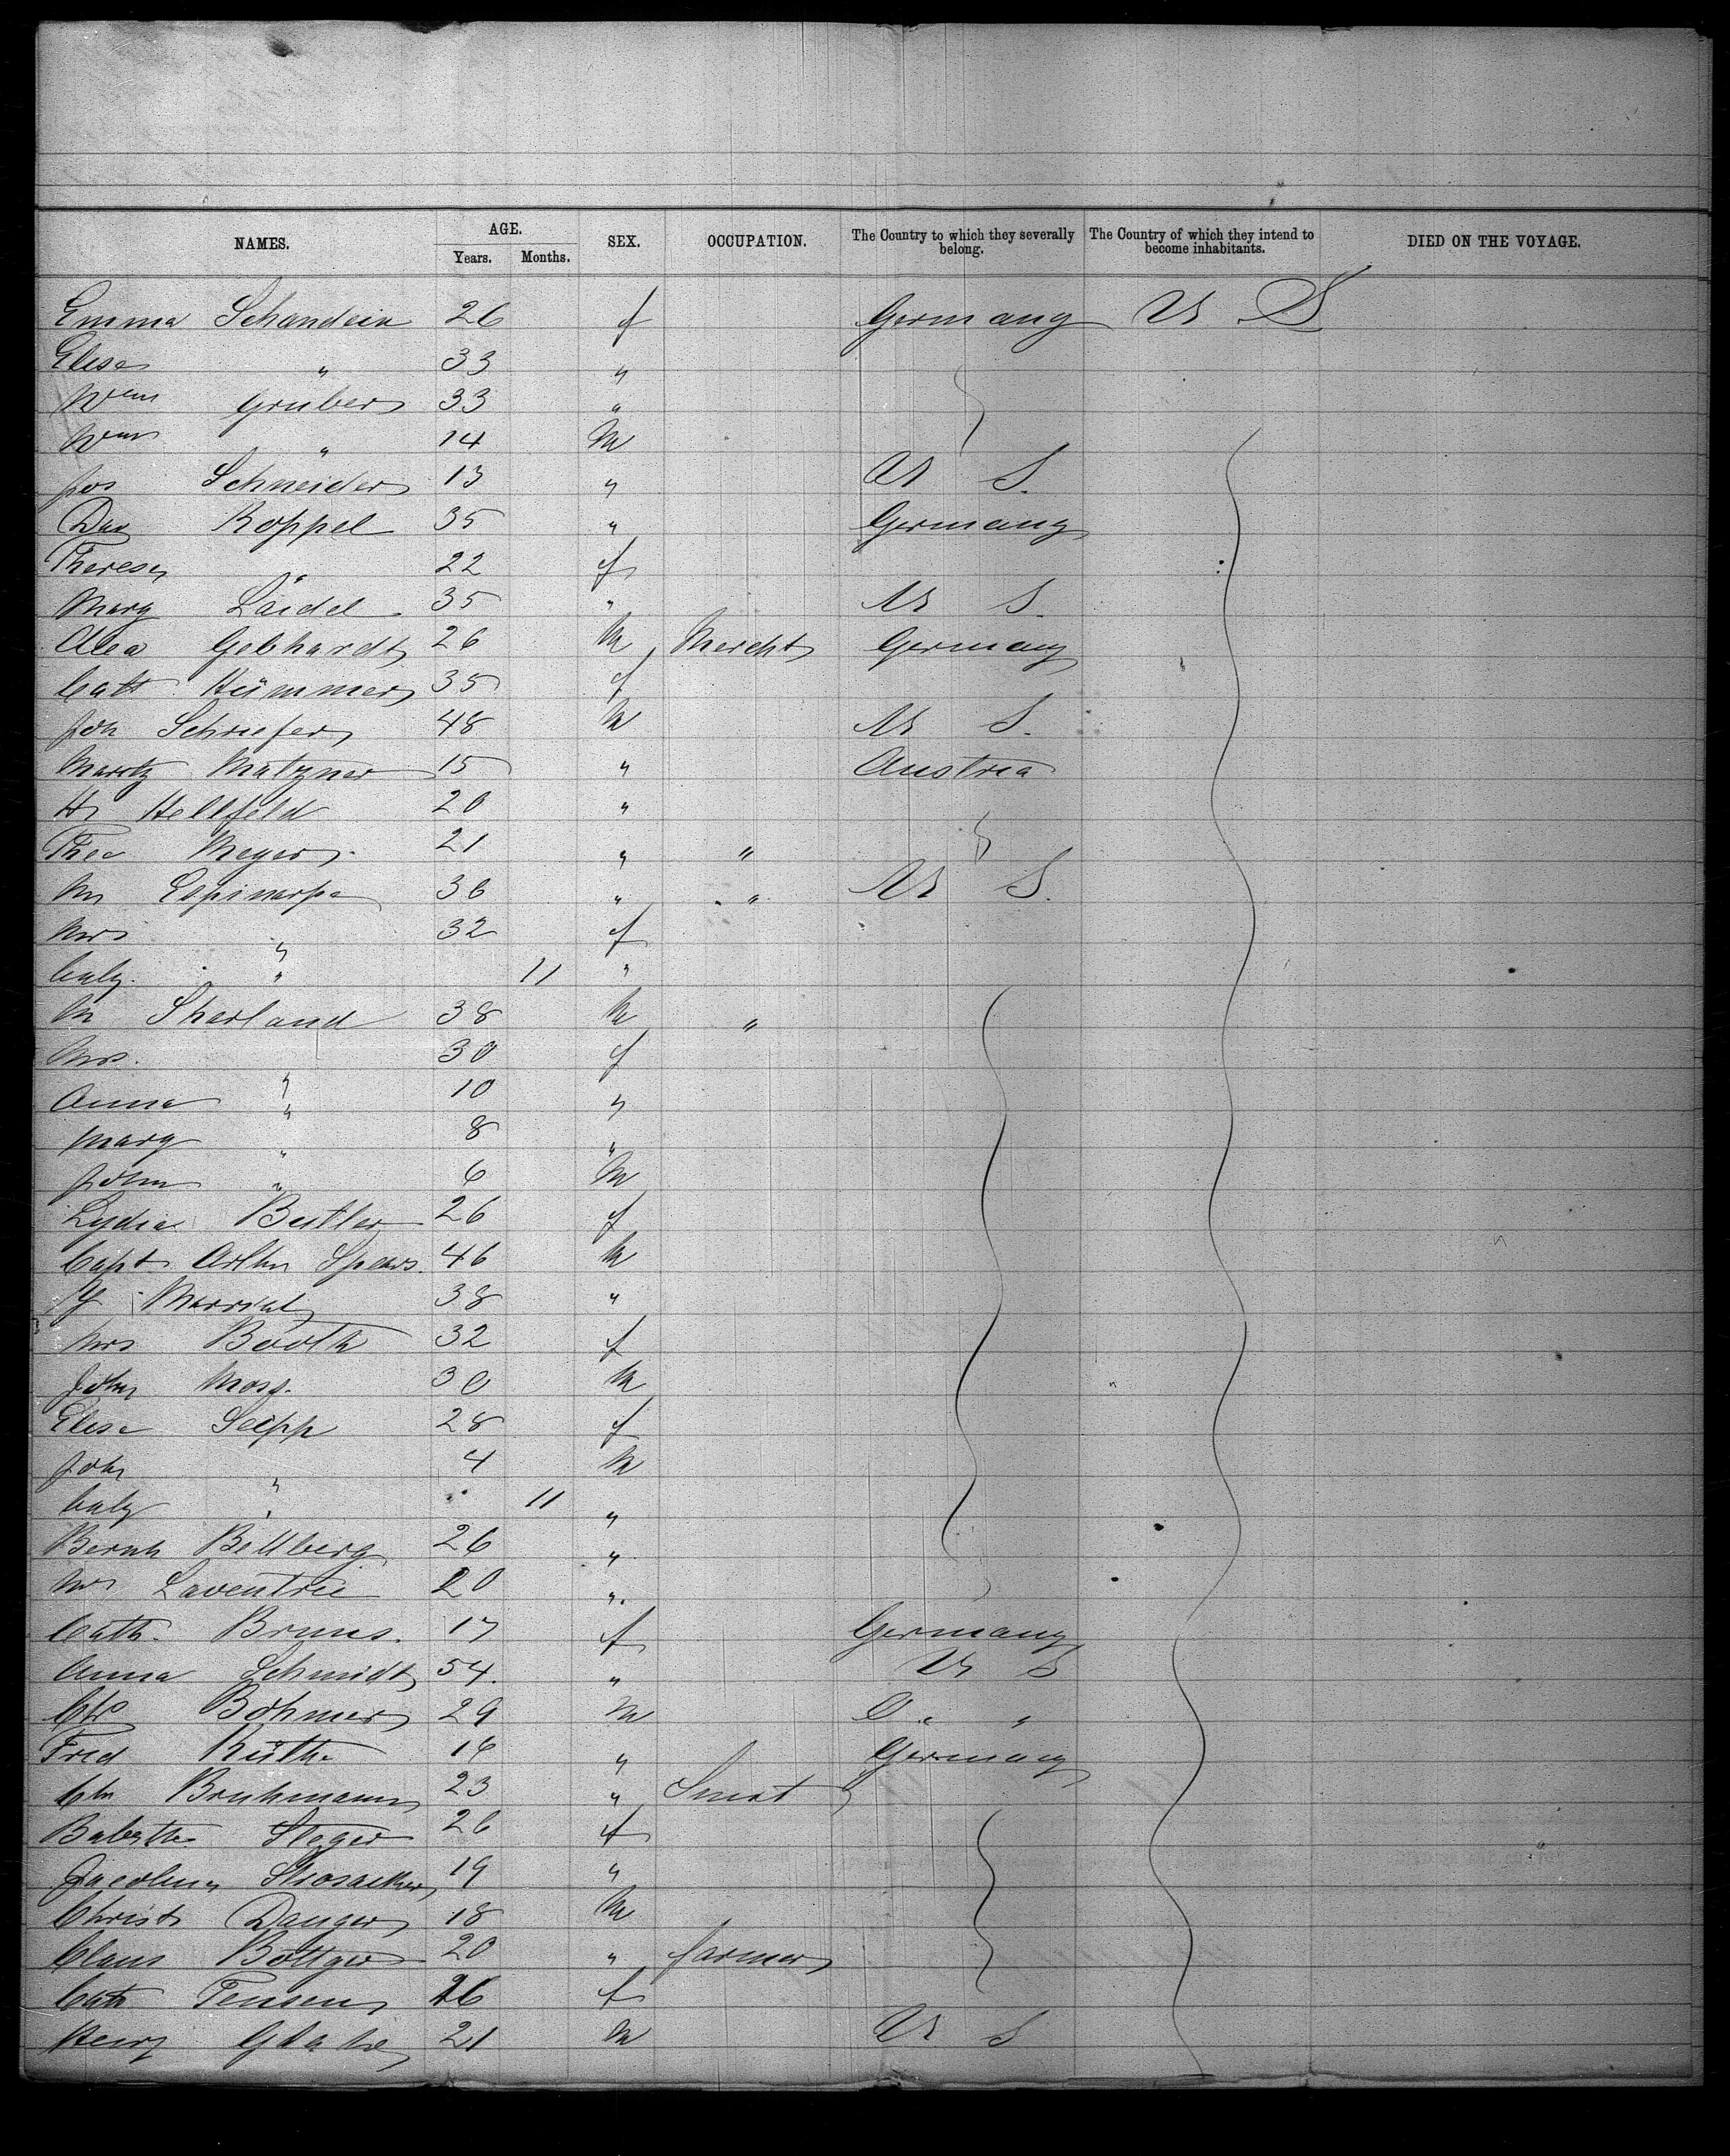 NAMES. AGE. SEX. OCCUPATION. The Country to which they severally belong. The Country of which they intend to become inhabitants. DIED ON THE VOYAGE.
Years. Months.
Emma Schandein 26 f Germany U S
Elise " 33 "
Wm Gruber 33 "
Wm " 14 M
Jos Schneider 13 " U S.
Dav Koppel 35 " Germany
Therese " 22 f
Mary Laidel 35 " U S.
Alex Gebhardt 26 M Mercht Germany
Cath Hümmer 35 f
Joh Schriefer 48 M U S.
Moritz Matzner 15 " Austria
Hr Hellfeld 20 "
Theo Meyer 21 " "
Mr 36 " " U S.
Mrs " 32 f
baby " 11 "
Mr Sherland 38 M "
Mrs. " 30 f
Anna " 10 "
Mary " 8 "
John " 6 M
Lydia Butler 26 f
Capt. Arthur Spears. 46 M
38 "
Mrs Booth 32 f
John Moss. 30 M
Elise Seipp 28 f
John " 4 M
baby " 11 "
Bernh Bellberg 26 "
Laventrie 20 ".
Cath. Bruns. 17 f Germany
Anna Schmidt 54. " U S
Böhmer 29 M "
Fred Küthe 16 " Germany
Bruhmann 23 "
Babette Steger 26 f
19 "
Christ Danger 18 M
Claus Böttger 20 " farmer
Cath Jensen 26 f
Henry 21 M U S